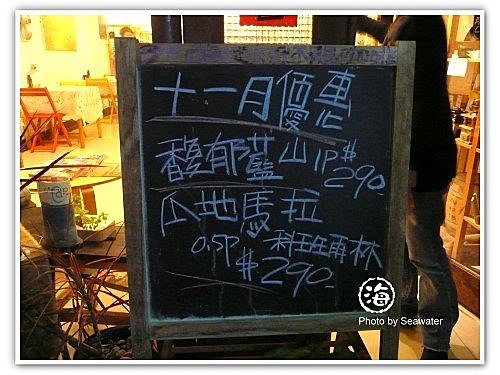 十一月優惠
馥郁藍山1P$290.
瓜地馬拉
0.5P 科班雨林
$290.
海
Photo by Seawater